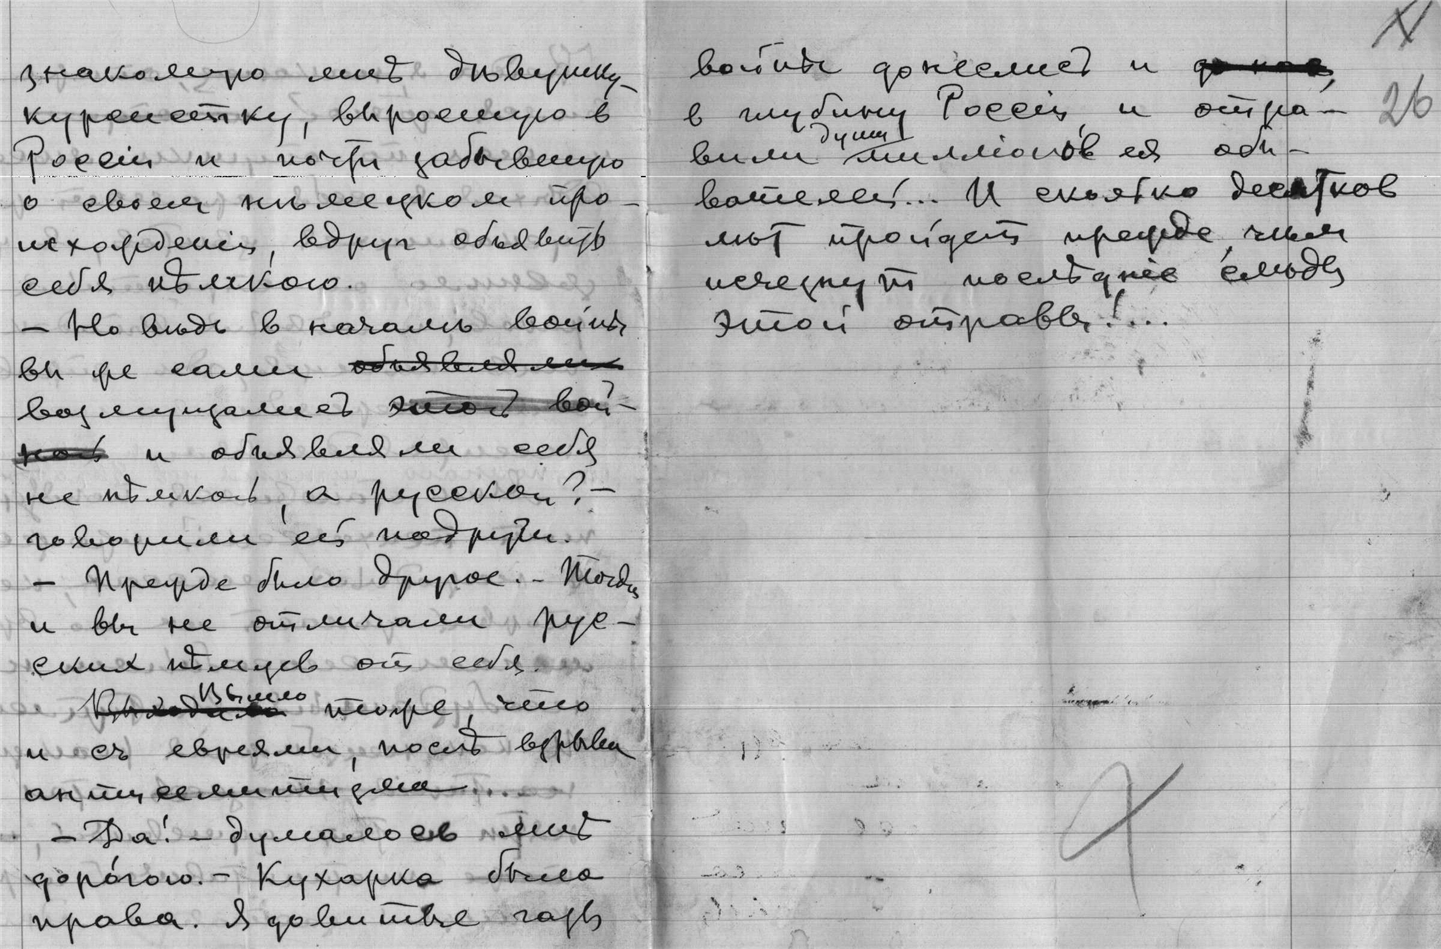 знакомую мнѣ дѣвушку-
курсистку, выросшую в
Россіи и почти забывшую
о своем нѣмецком про-
исхожденіи, вдруг объявить
себя нѣмкою.
— Но вѣдь в началѣ войны
вы же сами объявляли
возмущались этой вой-
ной и объявляли себя
не нѣмкой, а русской? —
говорили ей подруги.
— Прежде было другое. — Тогда
и вы не отличали рус-
ских нѣмцев от себя.
Выходило Вышло тоже, что
и съ евреями, послѣ взрыва
антисемитизма...
— Да! — думалось мнѣ
дорóгою. — Кухарка была
права. Ядовитые газы
X
26
войны донеслись и до нас,
в глубину Россіи, и отра-
вили души милліонов ея оби-
вателей... И сколько десятков
лѣт пройдет прежде, чѣм
исчезнут послѣдніе слѣды
этой отравы!...